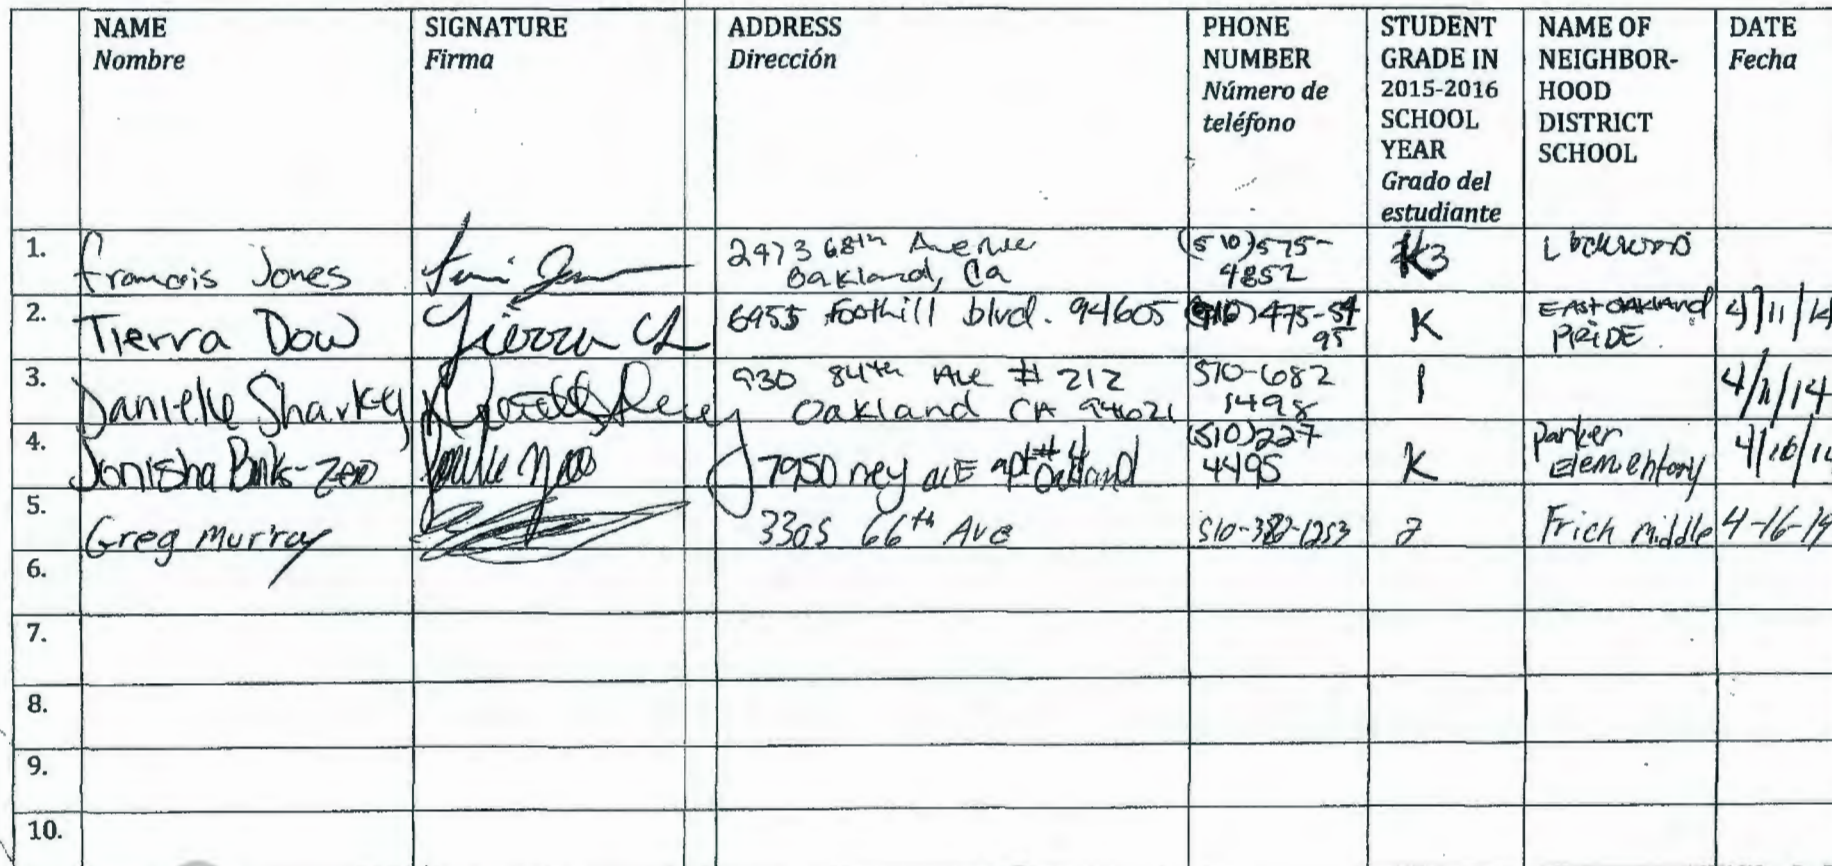 NAME
Nombre
SIGNATURE
Firma
ADDRESS
Dirección
PHONE
NUMBER
Número de
teléfono
STUDENT
GRADE IN
2015-2016
SCHOOL
YEAR
Grado del
estudiante
NAME OF
NEIGHBOR-
HOOD
DISTRICT
SCHOOL
DATE
Fecha
1.
Francis Jones
2473 68th Avenue
Oakland, Ca
(510)575-
4852
Lockwood
2.
Tierra Dow
6955 Foothill blvd. 94605
475-54
95
K
EAST OAKLAND
PRIDE
4/11/14
3.
Danielle Sharkey
930 84th Ave # 212
Oakland CA 94621
510-682
1498
1
4/11/14
4.
Jonisha
7950 ney ave apt#4 Oakland
(510)227
4495
K
parker
Elementory
4/16/14
5.
Greg Murray
3305 66th Ave
510-382-1253
2
Frich middle
4-16-14
6.
7.
8.
9.
10.